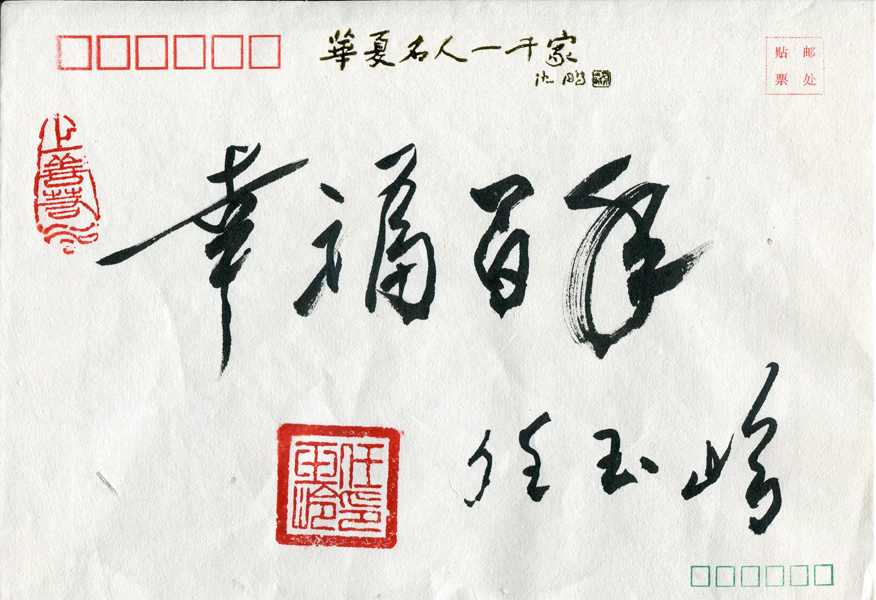 華夏名人一千家
沈鹏
贴 邮
票 处
上善若水
幸福百年
任玉岭
任印玉岭